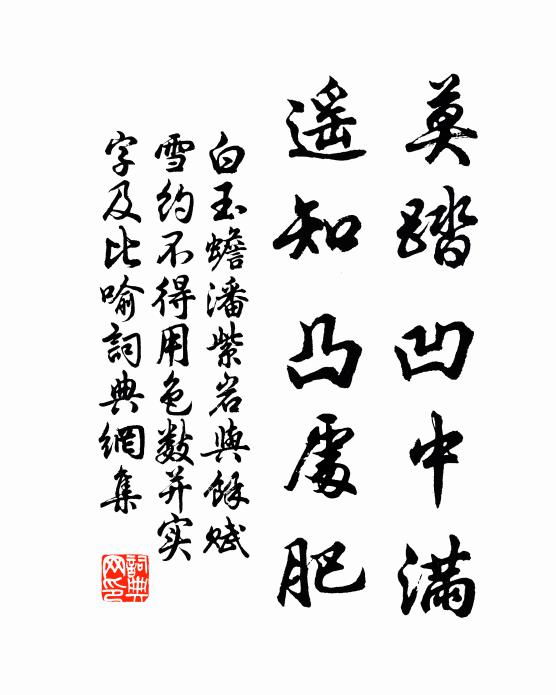 莫踏凹中满
遥知凸處肥
白玉蟾潘紫岩與餘賦
雪約不得用色數并实
字及比喻詞典網集
詞典网印